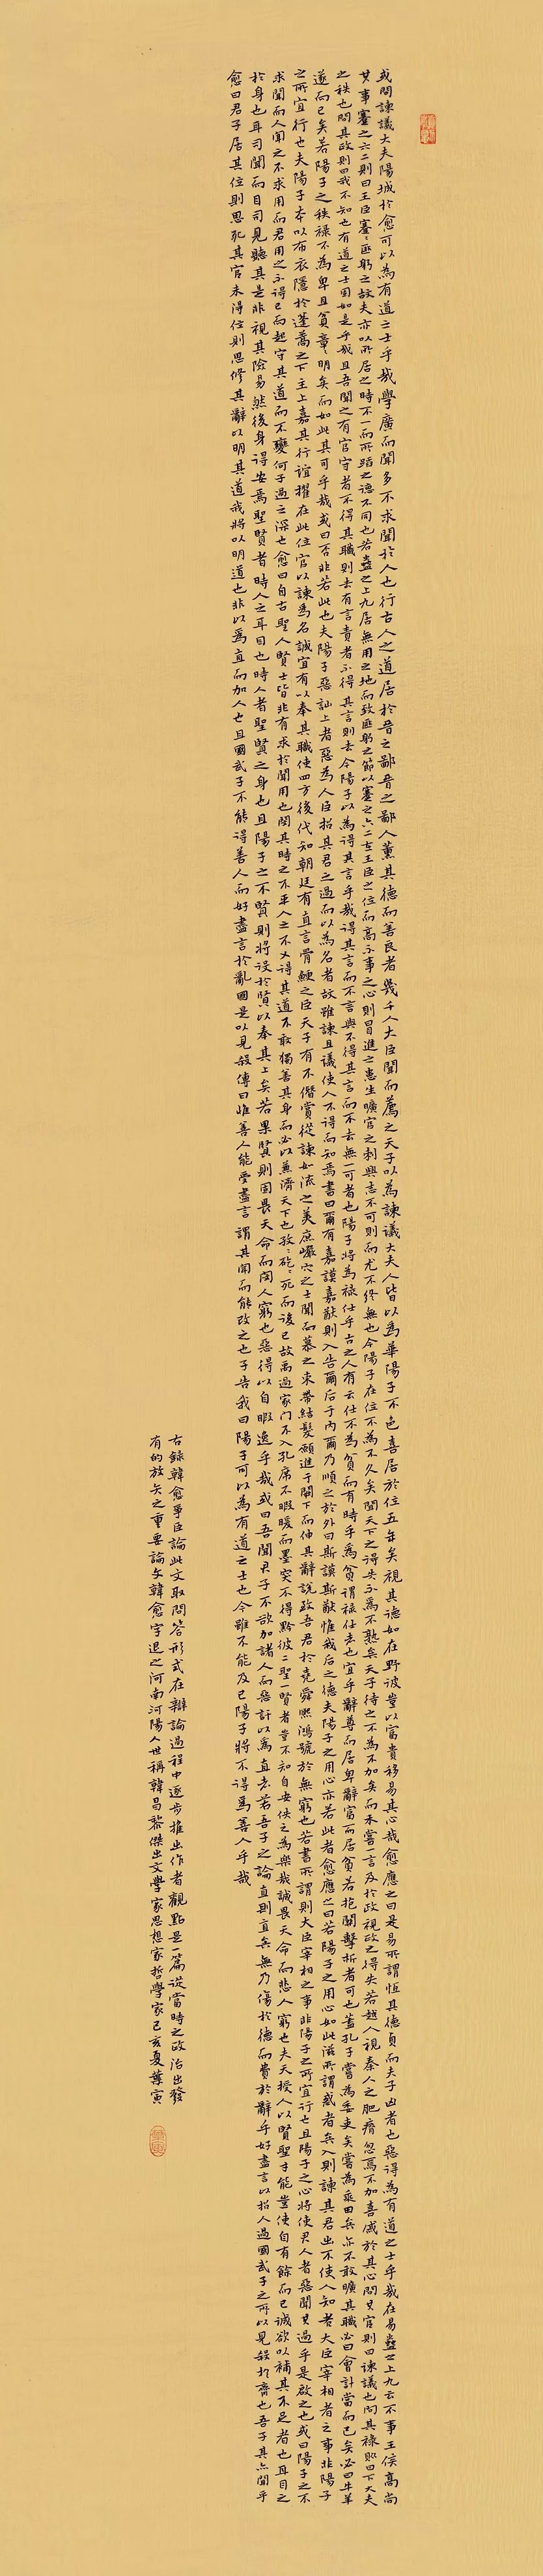 或問諫議大夫陽城於愈可以為有道之士乎哉學廣而聞多不求聞於人也行古人之道居於晉之鄙晉之鄙人薰其德而善良者幾千人大臣聞而薦之天子以為諫議大夫人皆以為華陽子不色喜居於位五年矣視其德如在野彼豈以富貴移易其心哉愈應之曰是易所謂恆其德貞而夫子凶者也惡得為有道之士乎哉在易蠱之上九云不事王侯高尚
其事蹇之六二則曰王臣蹇蹇匪躬之故夫亦以所居之時不一而所蹈之德不同也若蠱之上九居無用之地而致匪躬之節以蹇之六二在王臣之位而高不事之心則冒進之患生曠官之刺興志不可則而尤不終無也今陽子在位不為不久矣聞天下之得失不為不熟矣天子待之不為不加矣而未嘗一言及於政視政之得失若越人視秦人之肥瘠忽焉不加喜戚於其心問其官則曰諫議也問其祿則曰下大夫
之秩也問其政則曰我不知也有道之士固如是乎哉且吾聞之有官守者不得其職則去有言責者不得其言則去今陽子以為得其言乎哉得其言而不言與不得其言而不去無一可者也陽子將為祿仕乎古之人有云仕不為貧而有時乎為貧謂祿仕者也宜乎辭尊而居卑辭富而居貧若抱關擊柝者可也蓋孔子嘗為委吏矣嘗為乘田矣亦不敢曠其職必曰會計當而已矣必曰牛羊
遂而已矣若陽子之秩祿不為卑且貧章章明矣而如此其可乎哉或曰否非若此也夫陽子惡訕上者惡為人臣招其君之過而以為名者故雖諫且議使人不得而知焉書曰爾有嘉謨嘉猷則入告爾后于內爾乃順之於外曰斯謨斯猷惟我后之德夫陽子之用心亦若此者愈應之曰若陽子之用心如此滋所謂惑者矣入則諫其君出不使人知者大臣宰相者之事非陽子
之所宜行也夫陽子本以布衣隱於蓬蒿之下主上嘉其行誼擢在此位官以諫為名誠宜有以奉其職使四方後代知朝廷有直言骨鯁之臣天子有不僭賞從諫如流之美庶巖穴之士聞而慕之束帶結髮願進于闕下而伸其辭說致吾君於堯舜熙鴻號於無窮也若書所謂則大臣宰相之事非陽子之所宜行也且陽子之心將使君人者惡聞其過乎是啟之也或曰陽子之不
求聞而人聞之不求用而君用之不得已而起守其道而不變何子過之深也愈曰自古聖人賢士皆非有求於聞用也閔其時之不平人之不乂得其道不敢獨善其身而必以兼濟天下也孜孜矻矻死而後已故禹過家門不入孔席不暇暖而墨突不得黔彼二聖一賢者豈不知自安佚之為樂哉誠畏天命而悲人窮也夫天授人以賢聖才能豈使自有餘而已誠欲以補其不足者也耳目之
於身也耳司聞而目司見聽其是非視其險易然後身得安焉聖賢者時人之耳目也時人者聖賢之身也且陽子之不賢則將役於賢以奉其上矣若果賢則固畏天命而閔人窮也惡得以自暇逸乎哉或曰吾聞君子不欲加諸人而惡訐以為直者若吾子之論直則直矣無乃傷於德而費於辭乎好盡言以招人過國武子之所以見殺於齊也吾子其亦聞乎
愈曰君子居其位則思死其官未得位則思修其辭以明其道我將以明道也非以為直而加人也且國武子不能得善人而好盡言於亂國是以見殺傳曰惟善人能受盡言謂其聞而能改之也子告我曰陽子可以為有道之士也今雖不能及已陽子將不得為善人乎哉
右錄韓愈爭臣論此文取問答形式在辯論過程中逐步推出作者觀點是一篇從當時之政治出發
有的放矢之重要論文韓愈字退之河南河陽人世稱韓昌黎傑出文學家思想家哲學家己亥夏葉寅